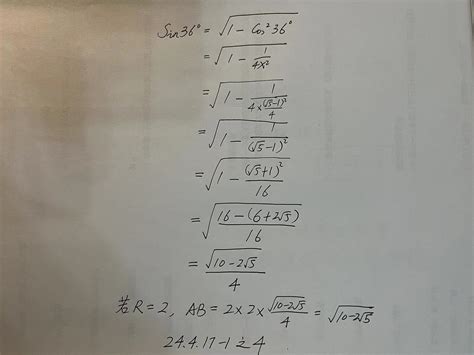 Sin36° = √(1 - Cos²36°)
= √(1 - 1/(4x²))
= √(1 - 1/(4×(√5-1)²/4))
= √(1 - 1/(√5-1)²)
= √(1 - (√5+1)²/16)
= √((16-(6+2√5))/16)
= √(10-2√5)/4
若R=2, AB=2×2×√(10-2√5)/4 = √(10-2√5)
24.4.17-1之4